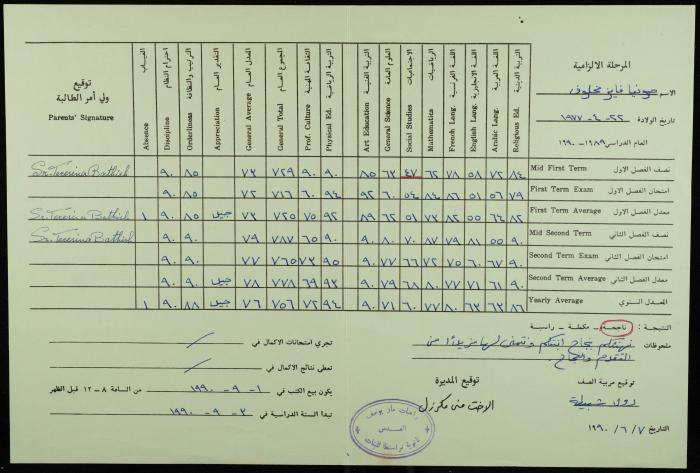 المرحلة الالزامية
الاسم صونيا فايز مخلوف
تاريخ الولادة ٢٢-٤-١٩٧٧
العام الدراسي ١٩٨٩-١٩٩٠
توقيع
ولي أمر الطالبة
Parents' Signature
الغياب
Absence
احترام النظام
Discipline
الترتيب والنظافة
Orderliness
التقدير العام
Appreciation
المعدل العام
General Average
المجموع العام
General Total
الثقافة المهنية
Prof. Culture
التربية الرياضية
Physical Ed.
التربية الفنية
Art Education
العلوم العامة
General Science
الاجتماعيات
Social Studies
الرياضيات
Mathematics
اللغة الفرنسية
French Lang.
اللغة الانجليزية
English Lang.
اللغة العربية
Arabic Lang.
التربية الدينية
Religious Ed.
Sr. Teresina Bathish ٩٠ ٨٥ ٧٣ ٧٢٩ ٩٠ ٩٠ ٨٥ ٦٣ ٤٧ ٦٢ ٧٨ ٥٨ ٧٢ ٨٤ Mid First Term نصف الفصل الاول
٩٠ ٨٥ ٧٢ ٧١٦ ٦٠ ٩٤ ٩٢ ٦٠ ٥٤ ٨٤ ٨٦ ٥١ ٥٦ ٧٩ First Term Exam امتحان الفصل الاول
Sr. Teresina Bathish ١ ٩٠ ٨٥ جيد ٧٣ ٧٢٥ ٧٥ ٩٢ ٨٩ ٦٢ ٥١ ٧٣ ٨٢ ٥٥ ٦٤ ٨٢ First Term Average معدل الفصل الاول
Sr. Teresina Bathish ٩٠ ٩٠ ٧٩ ٧٨٧ ٦٥ ٩٠ ٩٠ ٨٠ ٧٠ ٨٧ ٧٩ ٨١ ٥٥ ٩٠ Mid Second Term نصف الفصل الثاني
٩٠ ٩٠ ٧٧ ٧٦٥ ٧٣ ٩٥ ٩٠ ٧٧ ٦٦ ٧٢ ٧٥ ٦٠ ٦٧ ٩٠ Second Term Exam امتحان الفصل الثاني
٩٠ ٩٠ جيد ٧٨ ٧٧٨ ٦٩ ٩٣ ٩٠ ٧٩ ٦٨ ٨٠ ٧٧ ٧١ ٦١ ٩٠ Second Term Average معدل الفصل الثاني
١ ٩٠ ٨٨ جيد ٧٦ ٧٥٦ ٧٢ ٩٤ ٩٠ ٧١ ٦٠ ٧٧ ٨٠ ٦٣ ٦٣ ٨٦ Yearly Average المعدل السنوي
النتيجة : ناجحة - مكملة - راسبة
ملحوظات نهنئكم بنجاح ابنتكم ونتمنى لها مزيدًا من
التقدم والنجاح
توقيع مربية الصف
توقيع المديرة
الاخت منى مكرزل
التاريخ ٧/٦/١٩٩٠
تجري امتحانات الاكمال في
تعطى نتائج الاكمال في
يكون بيع الكتب في ١-٩-١٩٩٠ من الساعة ٨-١٢ قبل الظهر
تبدأ السنة الدراسية في ٣-٩-١٩٩٠
راهبات مار يوسف
القدس